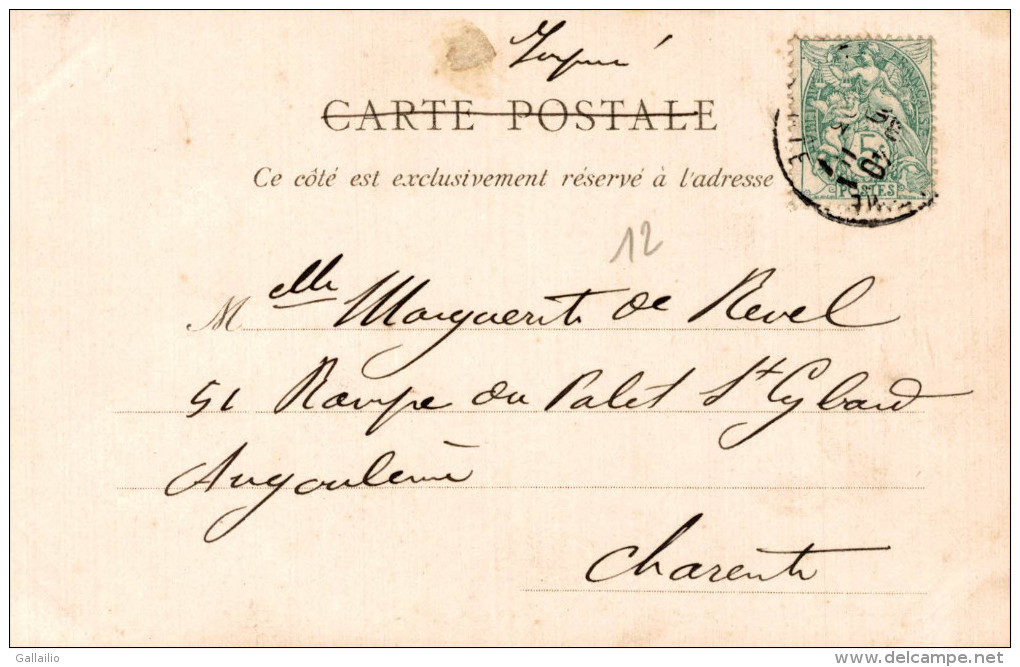 Imprimé
CARTE POSTALE
Ce côté est exclusivement réservé à l'adresse
RÉPUBLIQUE FRANÇAISE
5
POSTES
12
Melle Marguerite de Revel
51 Rampe du Palet St Cybard
Angoulême
Charente
Gallailio
www.delcampe.net